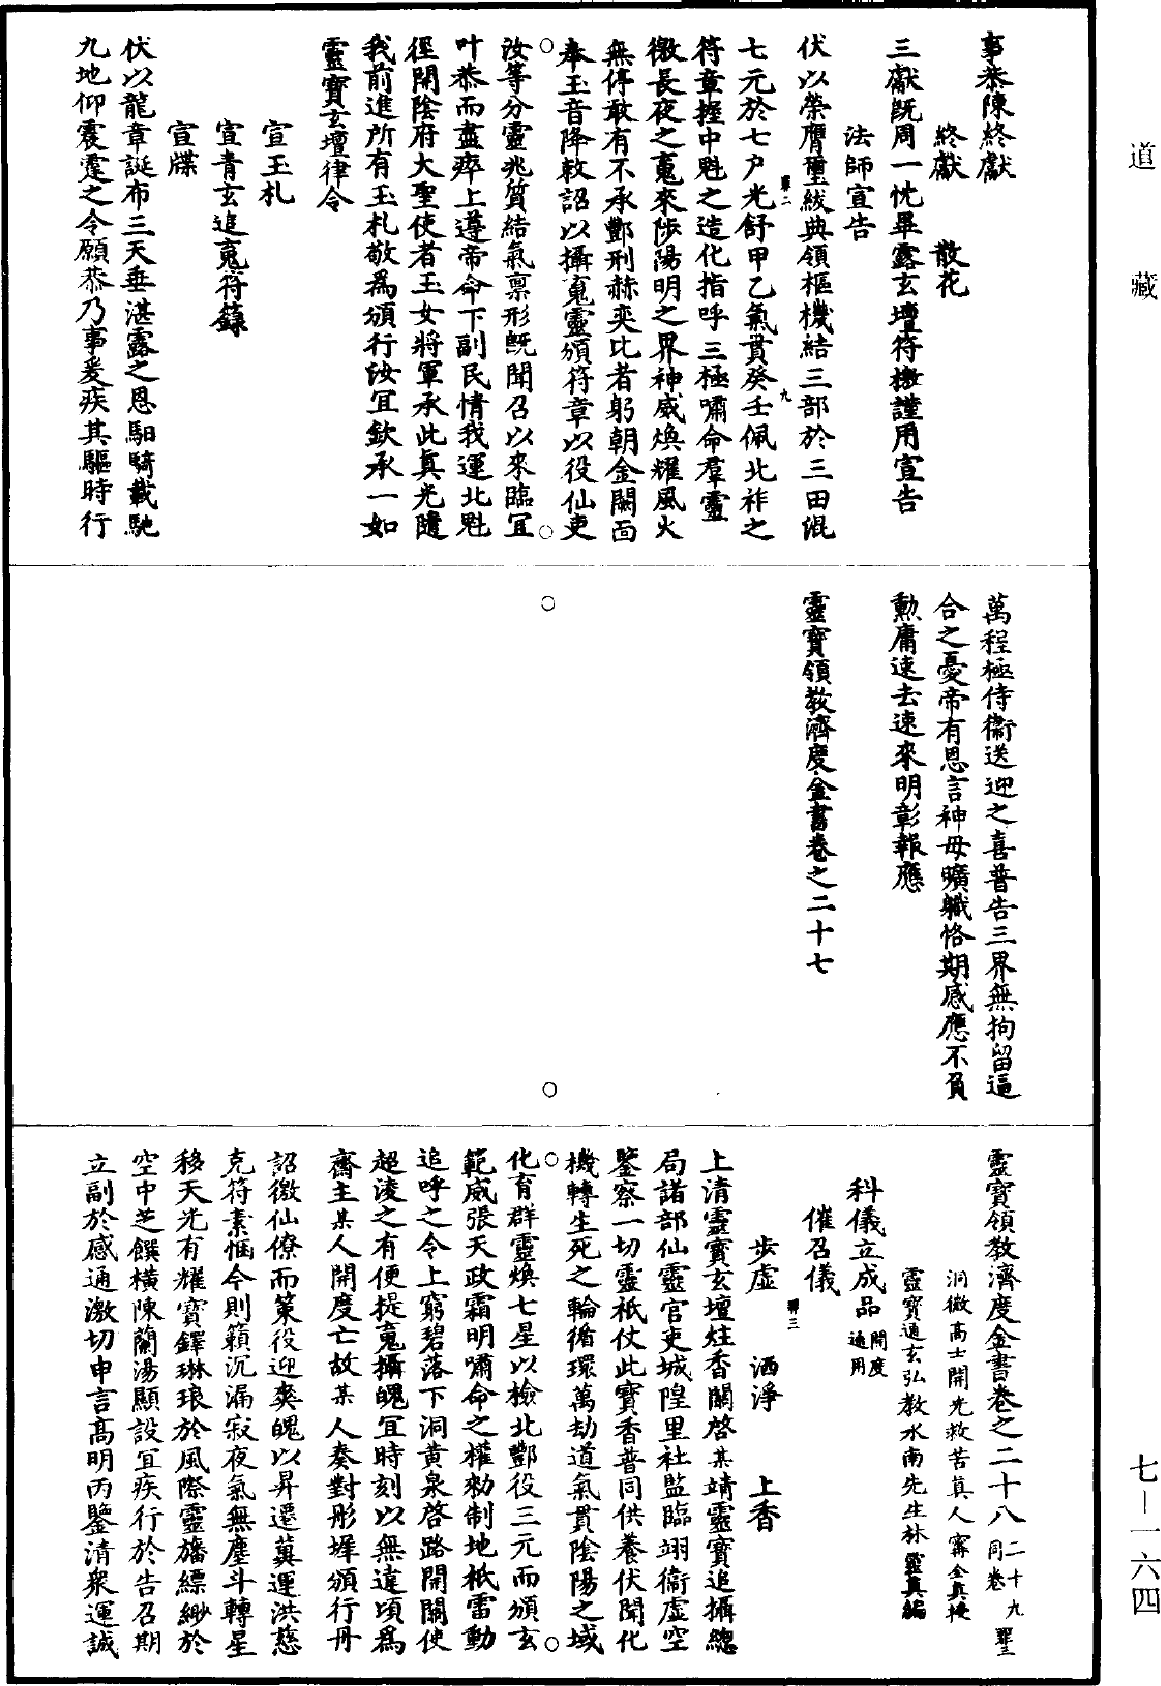 道藏
事恭陳終獻
終獻　散花
三獻既周一忱畢露玄壇符檄謹用宣告
法師宣告
伏以榮膺璽紱典領樞機結三部於三田混
七元於七戶光舒甲乙氣貫癸壬佩北祚之
符章握中魁之造化指呼三極嘯命羣靈
徹長夜之䰟來陟陽明之界神威煥耀風火
無停敢有不承酆刑赫奕比者躬朝金闕面
奉玉音降敕詔以攝䰟靈頒符章以役仙吏
汝等分靈兆質結氣禀形既聞召以來臨宜
叶恭而盡瘁上遵帝命下副民情我運北魁
徑開陰府大聖使者玉女將軍承此真光隨
我前進所有玉札敬為頒行汝宜欽承一如
靈寶玄壇律令
宣玉札
宣青玄追䰟符籙
宣牒
伏以龍章誕布三天垂湛露之恩馹騎載馳
九地仰震霆之令願恭乃事爰疾其驅時行
萬程極侍衞送迎之喜普告三界無拘留逼
合之憂帝有恩言神毋曠職恪期感應不負
勲庸速去速來明彰報應
靈寶領教濟度金書卷之二十七
靈寶領教濟度金書卷之二十八 二十九同卷
洞微高士開光救苦真人甯全真授
靈寶通玄弘教水南先生林靈真編
科儀立成品 開度通用
催召儀
步虛　洒淨　上香
上清靈寶玄壇炷香關啓某靖靈寶追攝總
局諸部仙靈官吏城隍里社監臨翊衞虛空
鑒察一切靈祇仗此寶香普同供養伏聞化
機轉生死之輪循環萬劫道氣貫陰陽之域
化育群靈煥七星以檢北酆役三元而頒玄
範威張天政霜明嘯命之權勑制地祇雷動
追呼之令上窮碧落下洞黃泉啓路開關使
超淩之有便提䰟攝魄宜時刻以無違頃為
齋主某人開度亡故某人奏對彤墀頒行丹
詔徵仙僚而策役迎爽魄以昇遷蓂運洪慈
克符素悃今則籟沉漏寂夜氣無塵斗轉星
移天光有耀寶鐸琳琅於風際靈旛縹緲於
空中芝饌橫陳蘭湯顯設宜疾行於告召期
立副於感通激切申言高明丙鑒清衆運誠
七－一六四